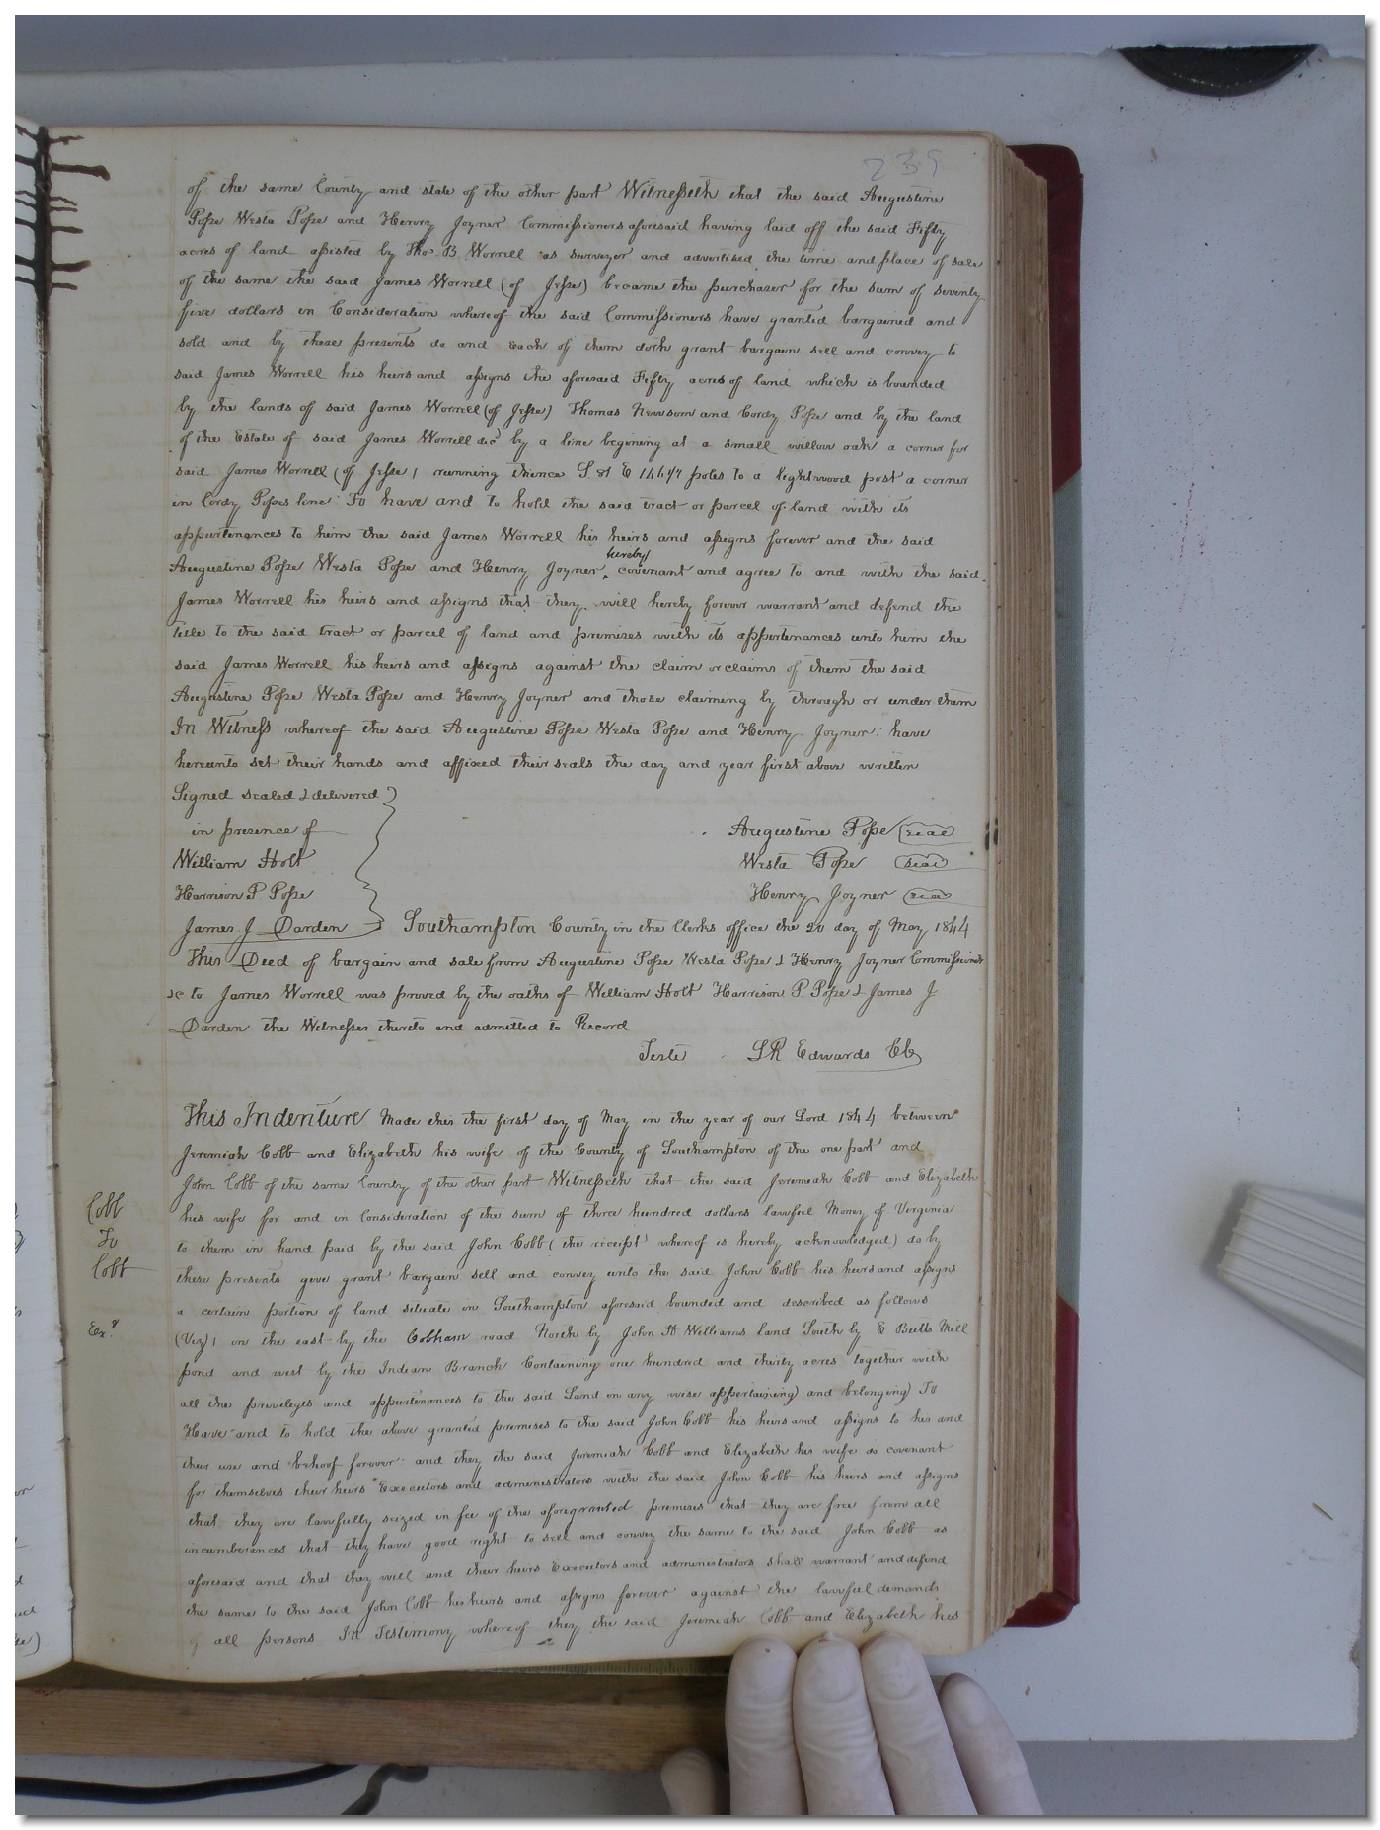 239
of the same County and state of the other part Witnesseth that the said Augustine
Pope Westa Pope and Henry Joyner Commissioners aforesaid having laid off the said Fifty
acres of land assisted by Tho. B Worrell as surveyor and advertised the time and place of sale
of the same the said James Worrell (of Jesse) became the purchaser for the sum of seventy
five dollars in Consideration whereof the said Commissioners have granted bargained and
sold and by these presents do and each of them doth grant bargain sell and convey to
said James Worrell his heirs and assigns the aforesaid Fifty acres of land which is bounded
by the lands of said James Worrell (of Jesse) Thomas Newsom and Cordy Pope and by the land
of the Estate of said James Worrell decd by a line begining at a small willow oak a corner for
said James Worrell (of Jesse) running thence S 81 E poles to a lightwood post a corner
in Cordy Popes line To have and to hold the said tract or parcel of land with its
appurtenances to him the said James Worrell his heirs and assigns forever and the said
Augustine Pope Westa Pope and Henry Joyner hereby covenant and agree to and with the said
James Worrell his heirs and assigns that they will hereby forever warrant and defend the
title to the said tract or parcel of land and premises with its appurtenances unto him the
said James Worrell his heirs and assigns against the claim or claims of them the said
Augustine Pope Westa Pope and Henry Joyner and those claiming by through or under them
In Witness whereof the said Augustine Pope Westa Pope and Henry Joyner have
hereunto set their hands and affixed their seals the day and year first above written
Signed sealed & delivered
in presence of
Augustine Pope seal
William Holt
Westa Pope seal
Harrison P Pope
Henry Joyner seal
James J Darden Southampton County in the Clerks office the 20 day of May 1844
This Deed of bargain and sale from Augustine Pope Westa Pope & Henry Joyner Commissioners
&c to James Worrell was proved by the oaths of William Holt Harrison P Pope & James J
Darden the Witnesses thereto and admitted to Record
Teste LR Edwards Clk
This Indenture Made this the first day of May in the year of our Lord 1844 between
Jeremiah Cobb and Elizabeth his wife of the County of Southampton of the one part and
John Cobb of the same County of the other part Witnesseth that the said Jeremiah Cobb and Elizabeth
Cobb
To
Cobb
his wife for and in Consideration of the sum of three hundred dollars lawful Money of Virginia
to them in hand paid by the said John Cobb (the receipt whereof is hereby acknowledged) do by
these presents give grant bargain sell and convey unto the said John Cobb his heirs and assigns
a certain portion of land situate in Southampton aforesaid bounded and described as follows
Exd
(Viz) on the east by the Cobham road North by John A Williams land South by E Butts Mill
pond and west by the Indian Branch Containing one hundred and thirty acres together with
all the privileges and appurtenances to the said Land in any wise appertaining) and belonging) To
Have and to hold the above granted premises to the said John Cobb his heirs and assigns to his and
their use and behoof forever and they the said Jeremiah Cobb and Elizabeth his wife do covenant
for themselves their heirs Executors and administrators with the said John Cobb his heirs and assigns
that they are lawfully seized in fee of the aforegranted premises that they are free from all
incumberances that they have good right to sell and convey the same to the said John Cobb as
aforesaid and that they will and their heirs Executors and administrators shall warrant and defend
the same to the said John Cobb his heirs and assigns forever against the lawful demands
of all persons In Testimony whereof they the said Jeremiah Cobb and Elizabeth his